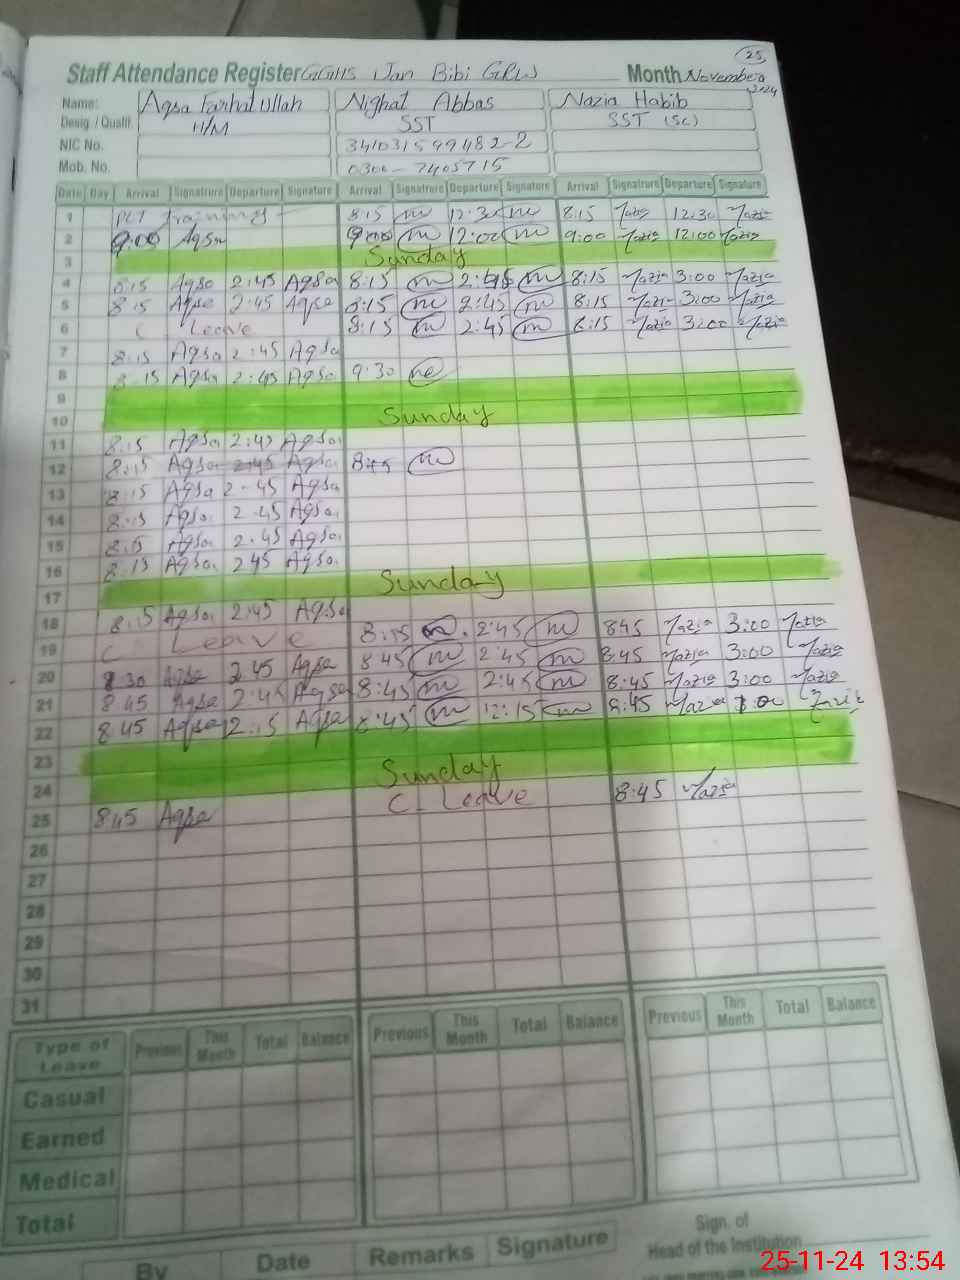 25
Staff Attendance Register GGHS Jan Bibi GRW Month November 2024
Name: Aqsa Farhat ullah Nighat Abbas Nazia Habib
Desig. / Qualif. H/M SST SST (SC)
NIC No. 341031599482-2
Mob. No. 0300-7405715
Date Day Arrival Signatrure Departure Signature Arrival Signatrure Departure Signature Arrival Signatrure Departure Signature
1 Trainings 8:15 m 12:30 m 8:15 Nazia 12:30 Nazia
2 9:00 Aqsa m 12:00 m 9:00 Nazia 12:00 Nazia
3 Sunday
4 8:15 Aqsa 2:45 Aqsa 8:15 m 2:45 m 8:15 Nazia 3:00 Nazia
5 8:15 Aqsa 2:45 Aqsa 8:15 m 2:45 m 8:15 Nazia 3:00 Nazia
6 C. Leave 8:15 m 2:45 m 8:15 Nazia 3:00 Nazia
7 8:15 Aqsa 2:45 Aqsa
8 8:15 Aqsa 2:45 Aqsa 9:30
9
10 Sunday
11 8:15 Aqsa 2:45 Aqsa
12 8:15 Aqsa 2:45 Aqsa 8:45 m
13 8:15 Aqsa 2:45 Aqsa
14 8:15 Aqsa 2:45 Aqsa
15 8:15 Aqsa 2:45 Aqsa
16 8:15 Aqsa 2 45 Aqsa
17 Sunday
18 8:15 Aqsa 2:45 Aqsa 8:45 m 2:45 m 845 Nazia 3:00 Nazia
19 C. Leave 8:45 m 2:45 m 8:45 Nazia 3:00 Nazia
20 8 30 Aqsa 2 45 Aqsa 8:45 m 2:45 m 8:45 Nazia 3:00 Nazia
21 8 45 Aqsa 2:45 Aqsa 8:45 m 12:15 m 8:45 Nazia 1:00 Nazia
22 8 45 Aqsa 2:15 Aqsa
23
24 Sunday
25 845 Aqsa C. Leave 8:45 Nazia
26
27
28
29
30
31
Type of Leave Previous This Month Total Balance Previous This Month Total Balance Previous This Month Total Balance
Casual
Earned
Medical
Total
By Date Remarks Signature
Sign. of
Head of the Institution
25-11-24 13:54